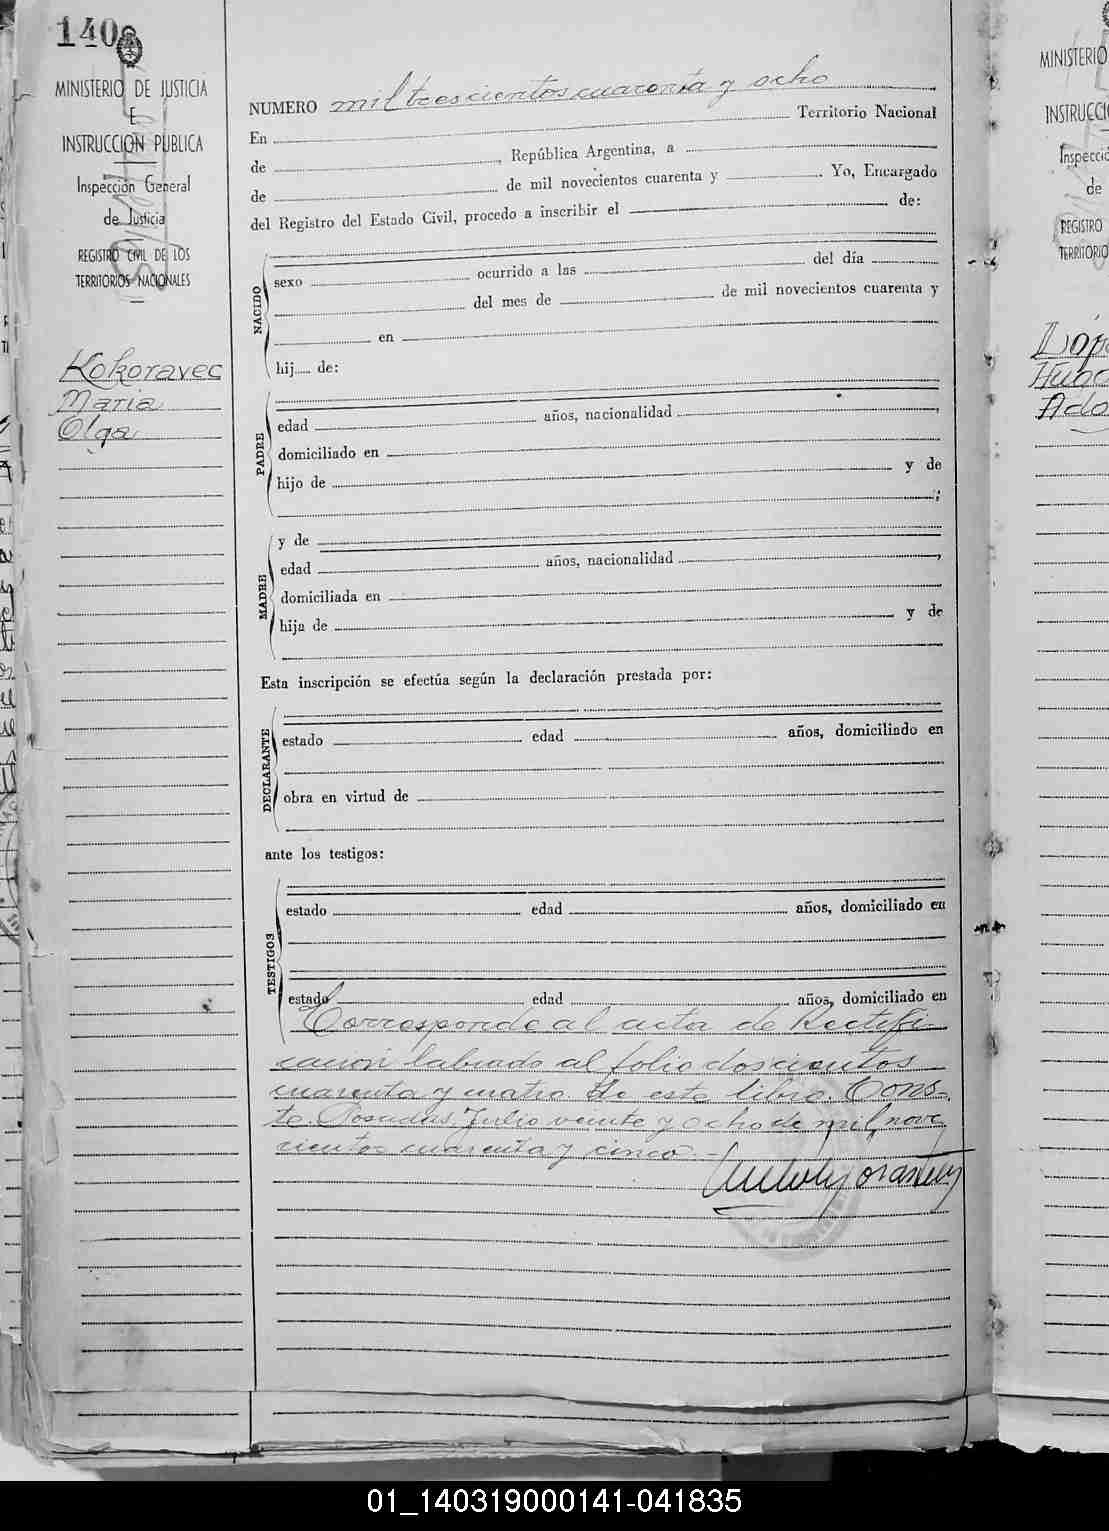 140
MINISTERIO DE JUSTICIA
E
INSTRUCCION PUBLICA
Inspección General
de Justicia
REGISTRO CIVIL DE LOS
TERRITORIOS NACIONALES
Kokoravec
Maria
Olga
NUMERO mil trescientos cuarenta y ocho
En Territorio Nacional
de , República Argentina, a
de de mil novecientos cuarenta y . Yo, Encargado
del Registro del Estado Civil, procedo a inscribir el de:
NACIDO
sexo ocurrido a las del día
del mes de de mil novecientos cuarenta y
en
hij de:
PADRE
edad años, nacionalidad ,
domiciliado en
hijo de y de
;
MADRE
y de
edad años, nacionalidad ,
domiciliada en
hija de y de
Esta inscripción se efectúa según la declaración prestada por:
DECLARANTE
estado edad años, domiciliado en
obra en virtud de
ante los testigos:
TESTIGOS
estado edad años, domiciliado en
estado edad años, domiciliado en
Corresponde al acta de Rectifi-
cación labrado al folio doscientos
cuarenta y cuatro de este libro. Cons-
te. Posadas, Julio veinte y ocho de mil nove
cientos cuarenta y cinco.-
MINISTERIO
INSTRUCCI
Inspecció
de
REGISTRO
TERRITORIO
Lópe
Hugo
Ado
01_140319000141-041835